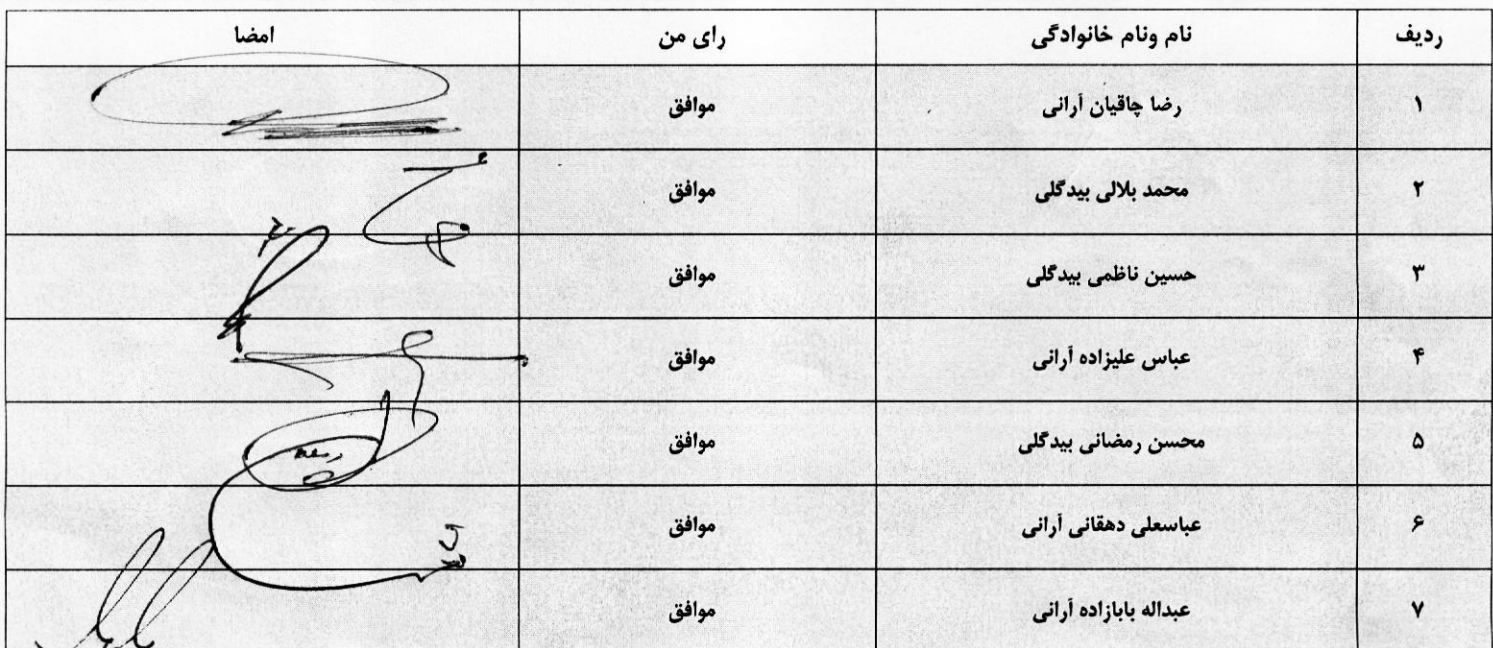 ردیف نام ونام خانوادگی رای من امضا
۱ رضا چاقیان آرانی موافق
۲ محمد بلالی بیدگلی موافق
۳ حسین ناظمی بیدگلی موافق
۴ عباس علیزاده آرانی موافق
۵ محسن رمضانی بیدگلی موافق
۶ عباسعلی دهقانی آرانی موافق
۷ عبداله بابازاده آرانی موافق